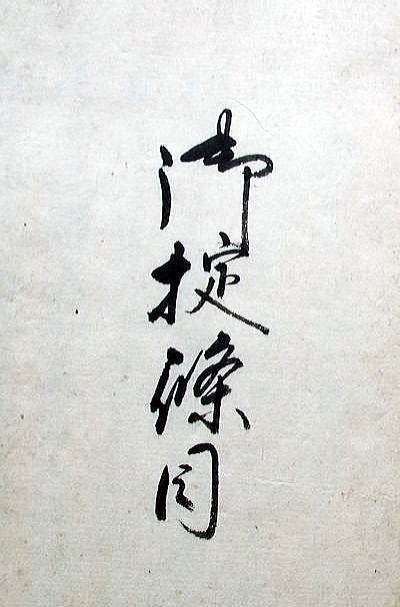 御掟條目